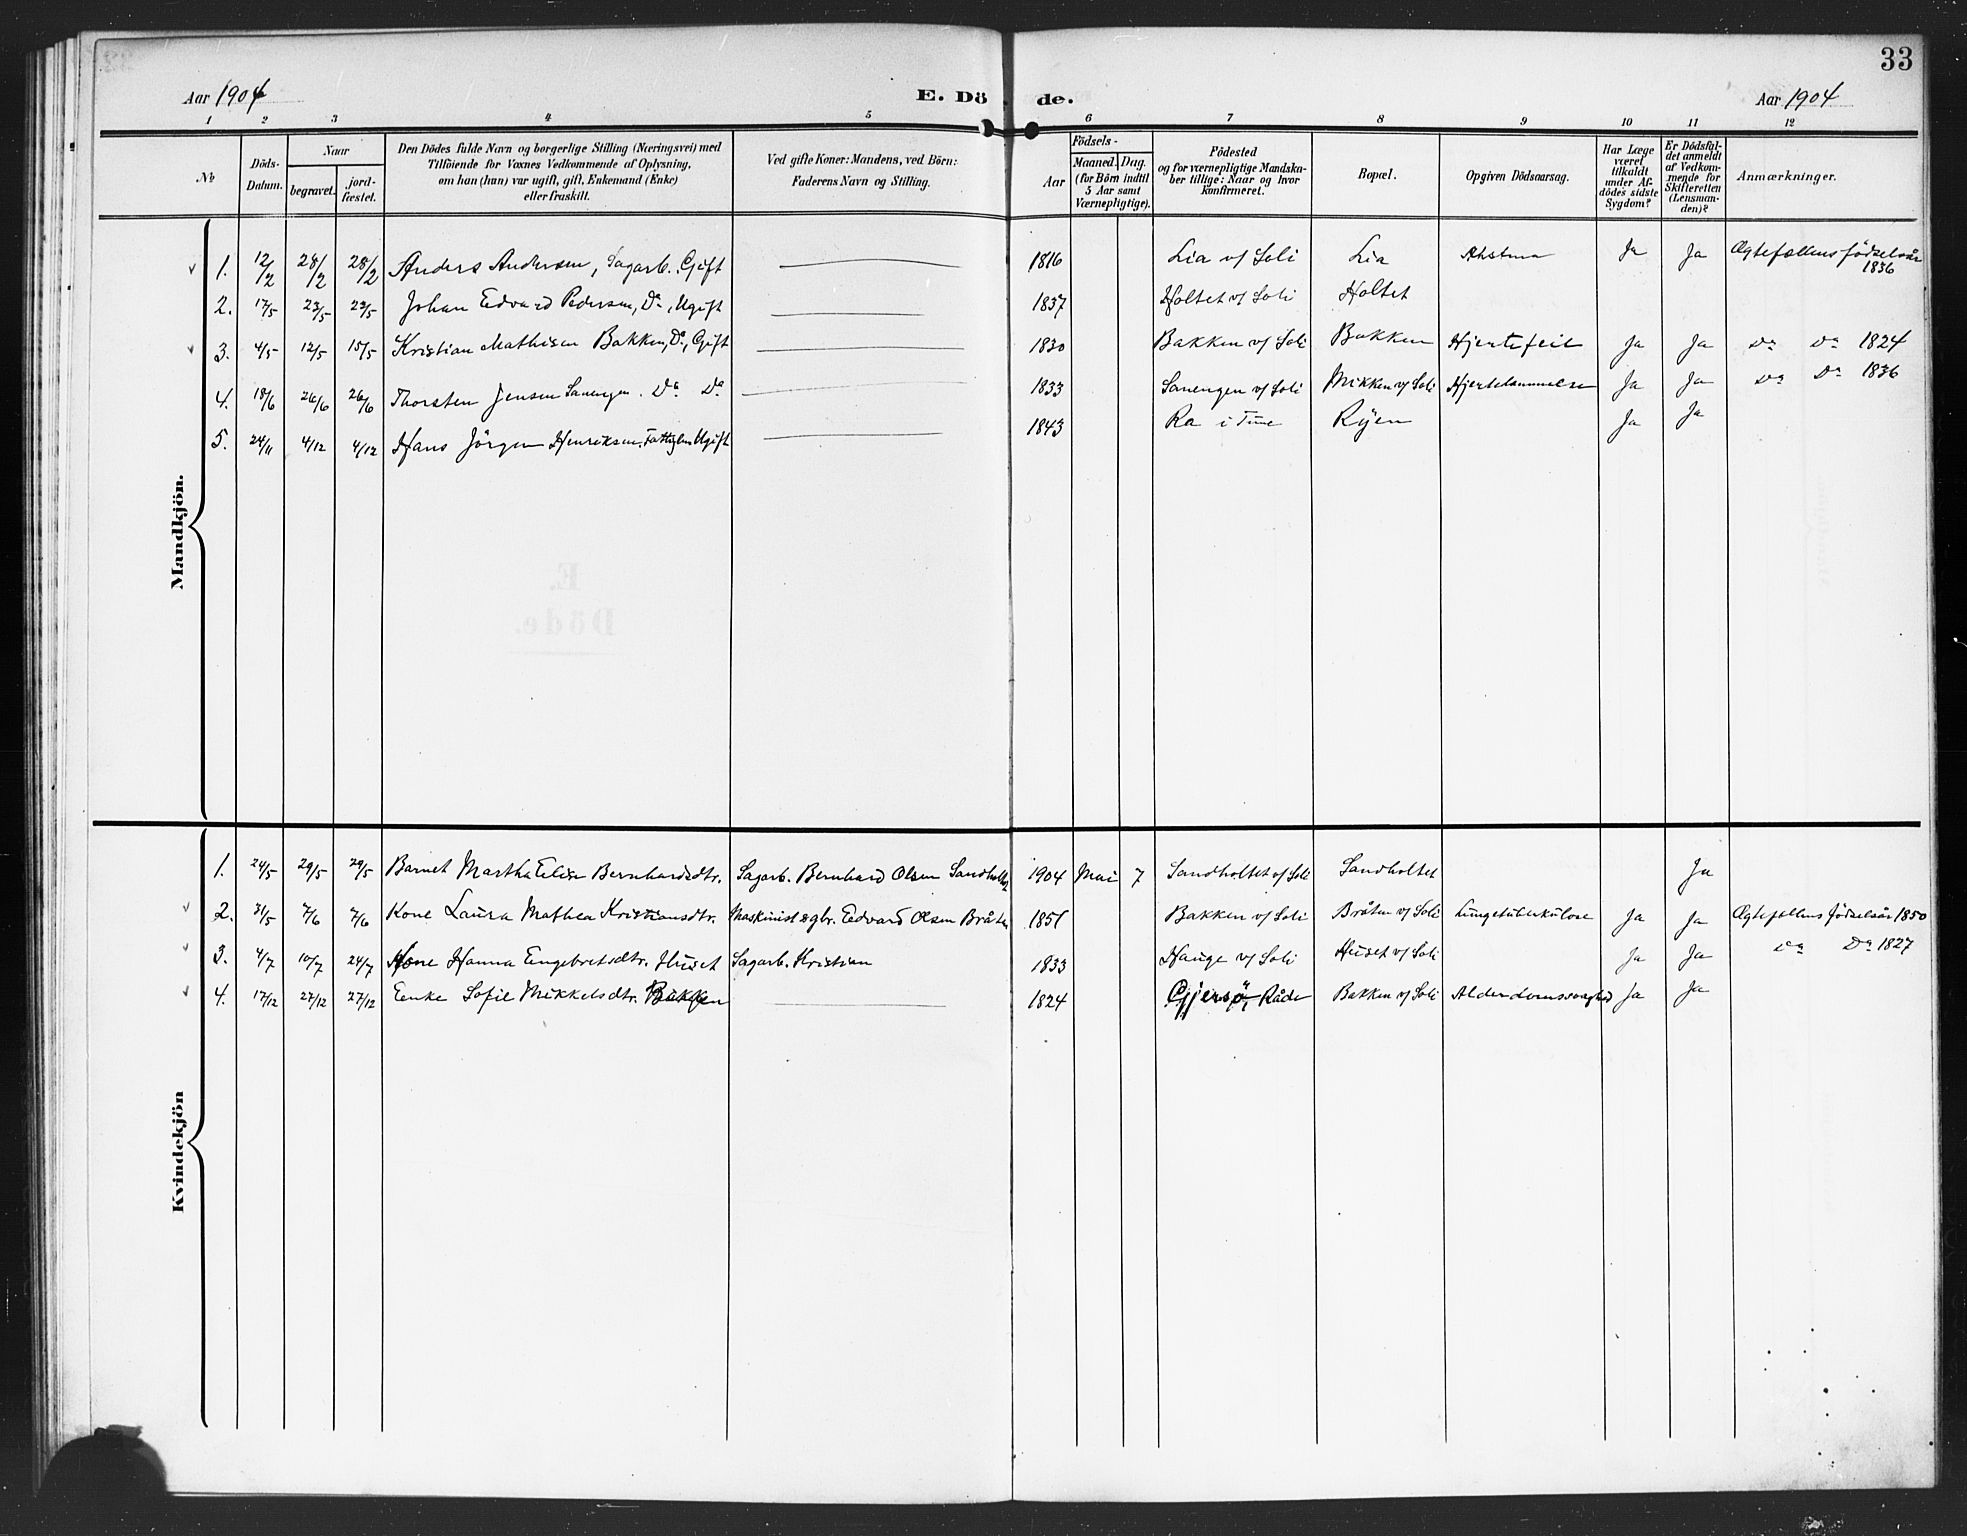 33
Aar 1904 E. Dö de. Aar 1904
1 2 3 4 5 6 7 8 9 10 11 12
No
Döds-Datum.
Naar
begravet.
jord-fæstet.
Den Dödes fulde Navn og borgerlige Stilling (Næringsvei) med
Tilföiende for Voxnes Vedkommende af Oplysning,
om han (hun) var ugift, gift, Enkemand (Enke)
eller fraskilt.
Ved gifte Koner: Mandens, ved Börn:
Faderens Navn og Stilling.
Födsels-
Aar
Maaned. Dag.
(for Börn indtil
5 Aar samt
Værnepligtige).
Födested
og for værnepligtige Mandska-
ber tillige: Naar og hvor
konfirmeret.
Bopæl.
Opgiven Dödsaarsag.
Har Læge
været
tilkaldt
under Af-
dödes sidste
Sygdom?
Er Dödsfal-
det anmeldt
af Vedkom-
mende for
Skifteretten
(Lensman-
den)?
Anmærkninger.
Mandkjön.
1. 12/2 28/2 28/2 Anders Andersen, Sagarb., Gift 1816 Lia v/ Soli Lia Ahstma Ja Ja Ægtefællens födselsår
1836
2. 17/5 23/5 23/5 Johan Edvard Pedersen, Do, Ugift 1837 Holtet v/ Soli Holtet
3. 4/5 12/5 15/5 Kristian Mathisen Bakken, Do, Gift 1830 Bakken v/ Soli Bakken Hjertefeil Ja Ja Do Do 1824
4. 18/6 26/6 26/6 Thorsten Jensen Sanengen. Do Do 1833 Sanengen v/ Soli Mikken v/ Soli Hjertelammelse Ja Ja Do Do 1836
5. 24/11 4/12 4/12 Hans Jörgen Henriksen, Fattiglem Ugift 1843 Ra i Tune Ryen Ja Ja
Kvindekjön
1. 24/5 29/5 29/5 Barnet Martha Elise Bernhardsdtr. Sagarb. Bernhard Olsen Sandholtet 1904 Mai 7 Sandholtet v/ Soli Sandholtet Ja
2. 31/5 7/6 7/6 Kone Laura Mathea Kristiansdtr. Maskinist & gbr. Edvard Olsen Bråten 1851 Bakken v/ Soli Bråten v/ Soli Lungetuberkulose Ja Ja Ægtefællens födselsår 1850
3. 4/7 10/7 24/7 Kone Hanna Engebretsdtr. Huset Sagarb. Kristian 1833 Hauge v/ Soli Huset v/ Soli Ja Ja Do Do 1827
4. 17/12 27/12 27/12 Enke Sofie Mikkelsdtr. Bakken 1824 Gjersö, Råde Bakken v/ Soli Alderdomssvaghed Ja Ja